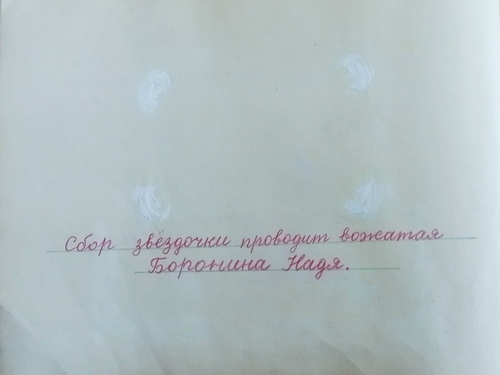 Сбор звёздочки проводит вожатая
Боронина Надя.